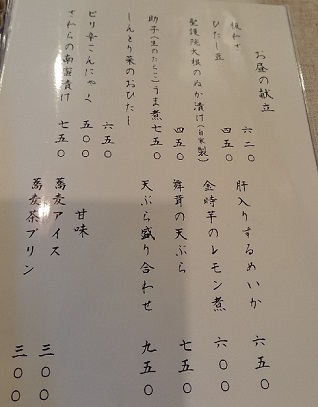 お昼の献立
板わさ 六二〇
ひたし豆 四五〇
聖護院大根のぬか漬け(自家製) 四五〇
助子(生のたらこ)うま煮 七五〇
しんとり菜のおひたし 六五〇
ピリ辛こんにゃく 五〇〇
さわらの南蛮漬け 七五〇
肝入りするめいか 六五〇
金時芋のレモン煮 六〇〇
舞茸の天ぷら 七五〇
天ぷら盛り合わせ 九五〇
甘味
蕎麦アイス 三〇〇
蕎麦茶プリン 三〇〇